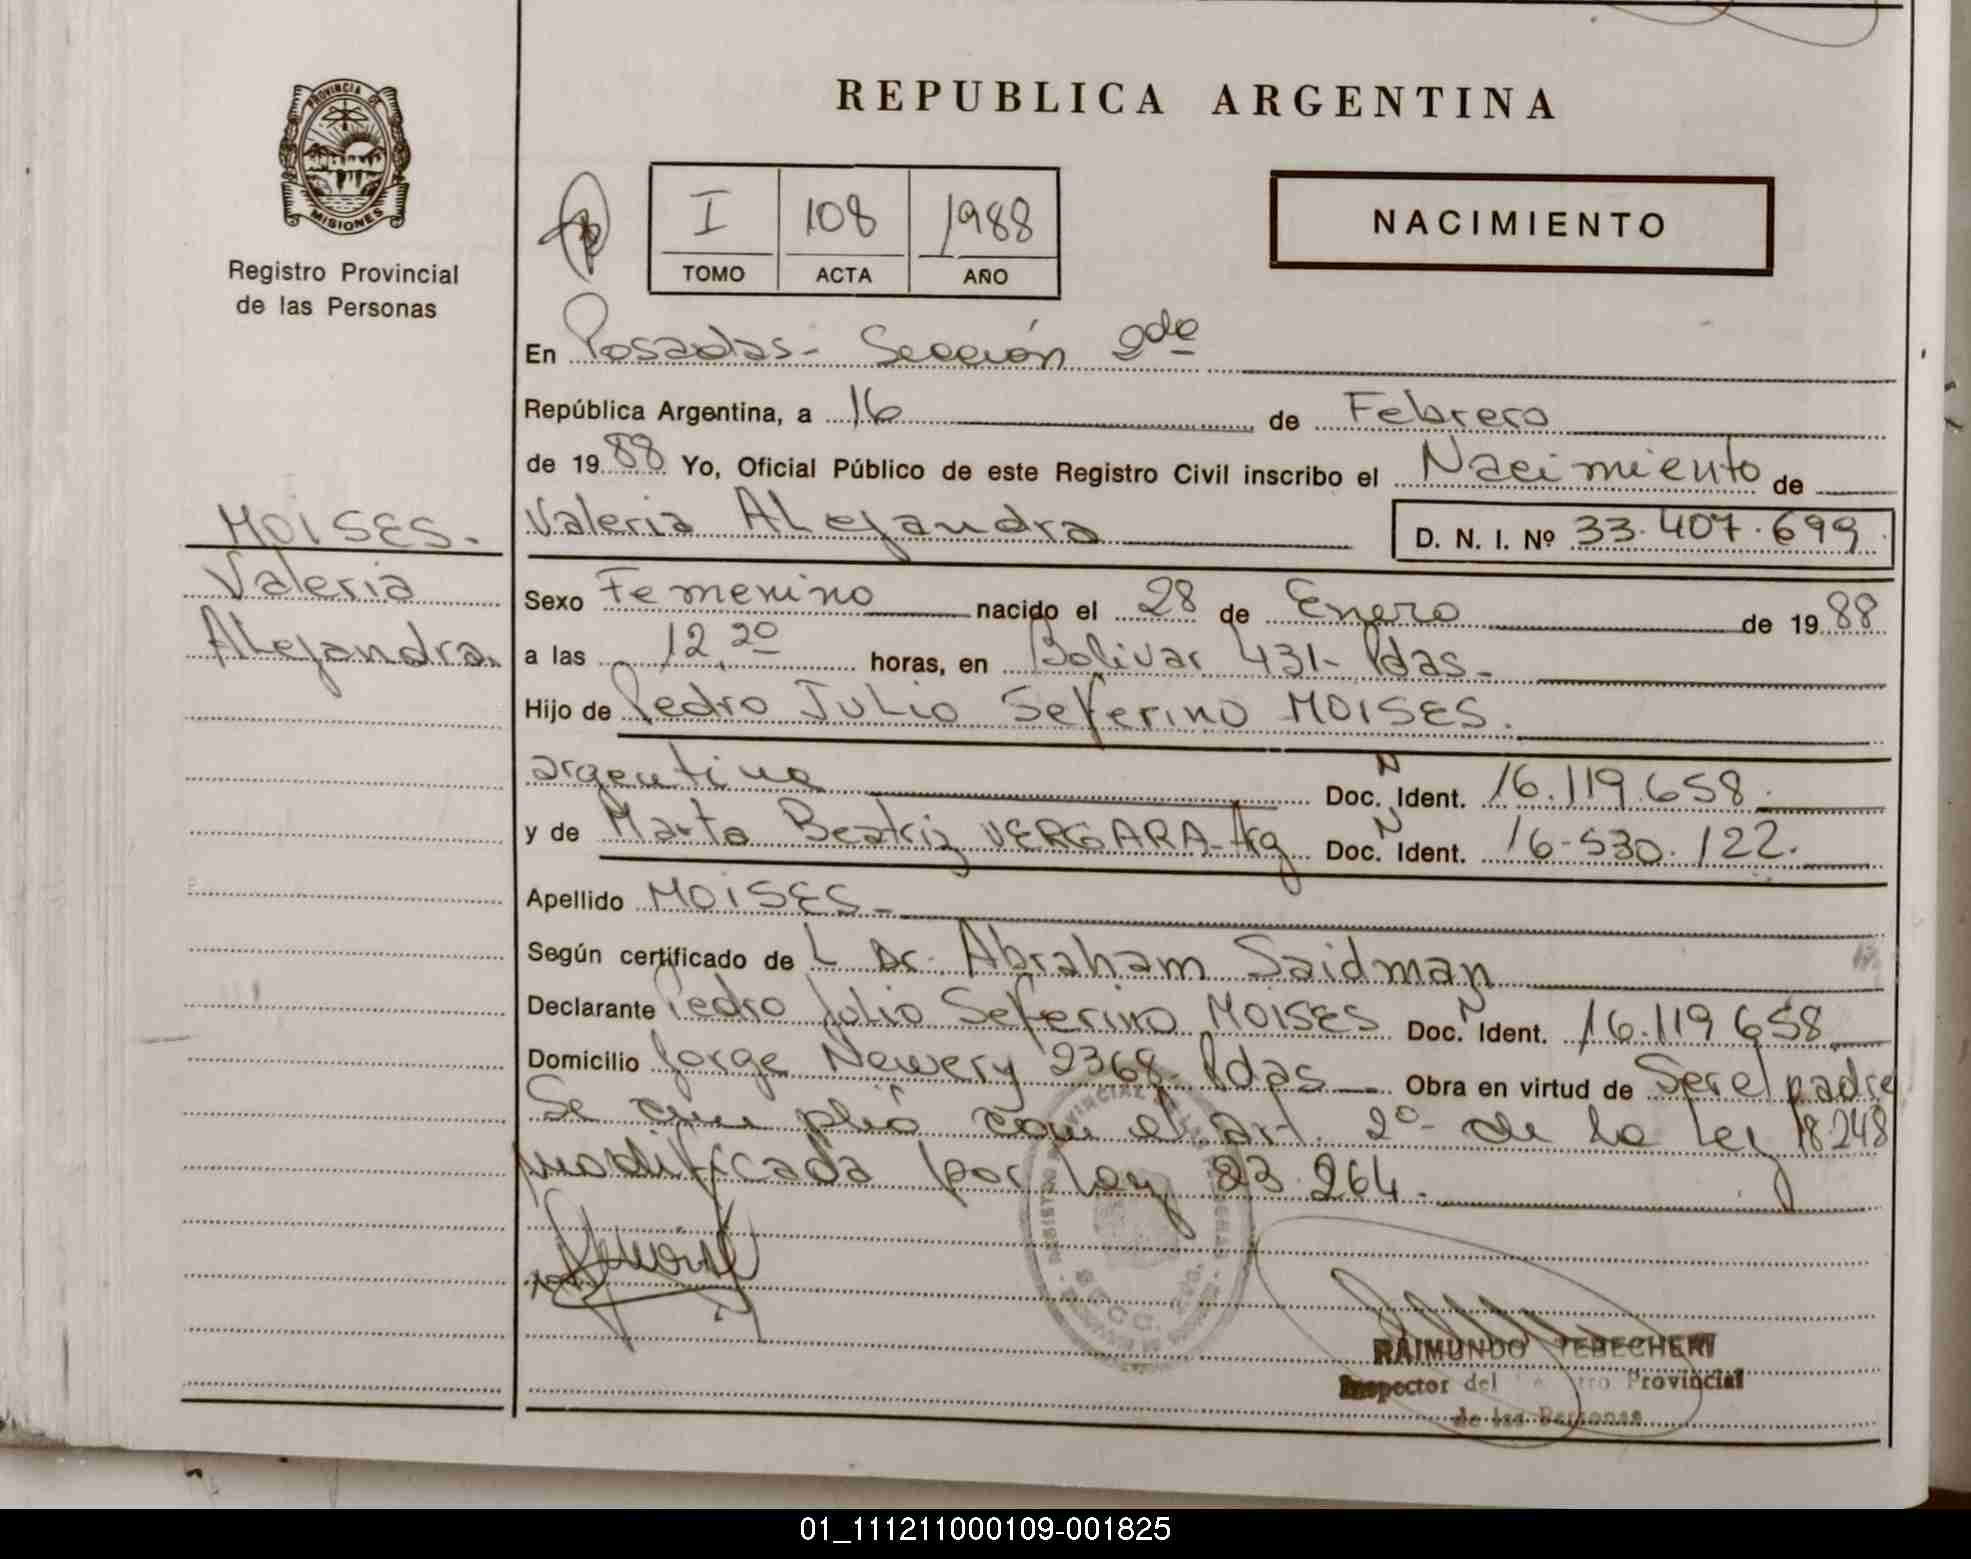 REPUBLICA ARGENTINA
PROVINCIA DE
MISIONES
Registro Provincial
de las Personas
I 108 1988
TOMO ACTA AÑO
NACIMIENTO
En Posadas- Sección 2da
República Argentina, a 16 de Febrero
de 1988 Yo, Oficial Público de este Registro Civil inscribo el Nacimiento de
Valeria Alejandra D. N. I. Nº 33.407.699
MOISES.
Valeria
Alejandra.
Sexo Femenino nacido el 28 de Enero de 1988
a las 12,20 horas, en Bolivar 431- Pdas-
Hijo de Pedro Julio Seferino MOISES.
argentino Doc. N Ident. 16.119.658.
y de Marta Beatriz VERGARA- Arg Doc. N Ident. 16-530.122.
Apellido MOISES-
Según certificado de L Dr. Abraham Saidman
Declarante Pedro Julio Seferino MOISES Doc. N Ident. 16.119 658
Domicilio Jorge Newery 2368- Pdas Obra en virtud de Ser el padre
Se cumplió con el art. 2º- de la Ley 18.248
modificada por Ley 23.264.
RAIMUNDO TEBECHERI
Inspector del Registro Provincial
de las Personas
01_111211000109-001825